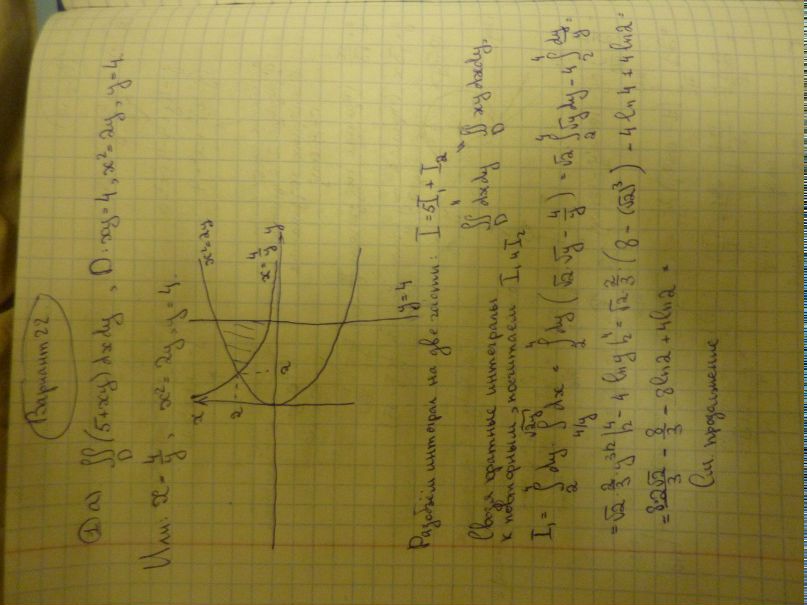 Вариант 22
① а) ∬_D (5+xy) dx dy, D: xy=4, x²=2y, y=4.
Или: x=4/y, x²=2y, y=4.
x
x²=2y
x=4/y
y
2
2
y=4
Разобьём интеграл на две части: I = 5I₁ + I₂
∬_D dxdy ∬_D xydxdy.
Сводя кратные интегралы
к повторным, посчитаем I₁ и I₂
I₁ = ∫₂⁴ dy ∫_{4/y}^{√2y} dx = ∫₂⁴ dy (√2·√y − 4/y) = √2 ∫₂⁴ √y dy − 4 ∫₂⁴ dy/y =
= √2 · 2/3 · y^{3/2} |₂⁴ − 4 ln y |₂⁴ = √2 2/3 · (8 − (√2)³) − 4 ln 4 + 4 ln 2 =
= 8·2√2/3 − 8/3 − 8 ln 2 + 4 ln 2 =
См. продолжение